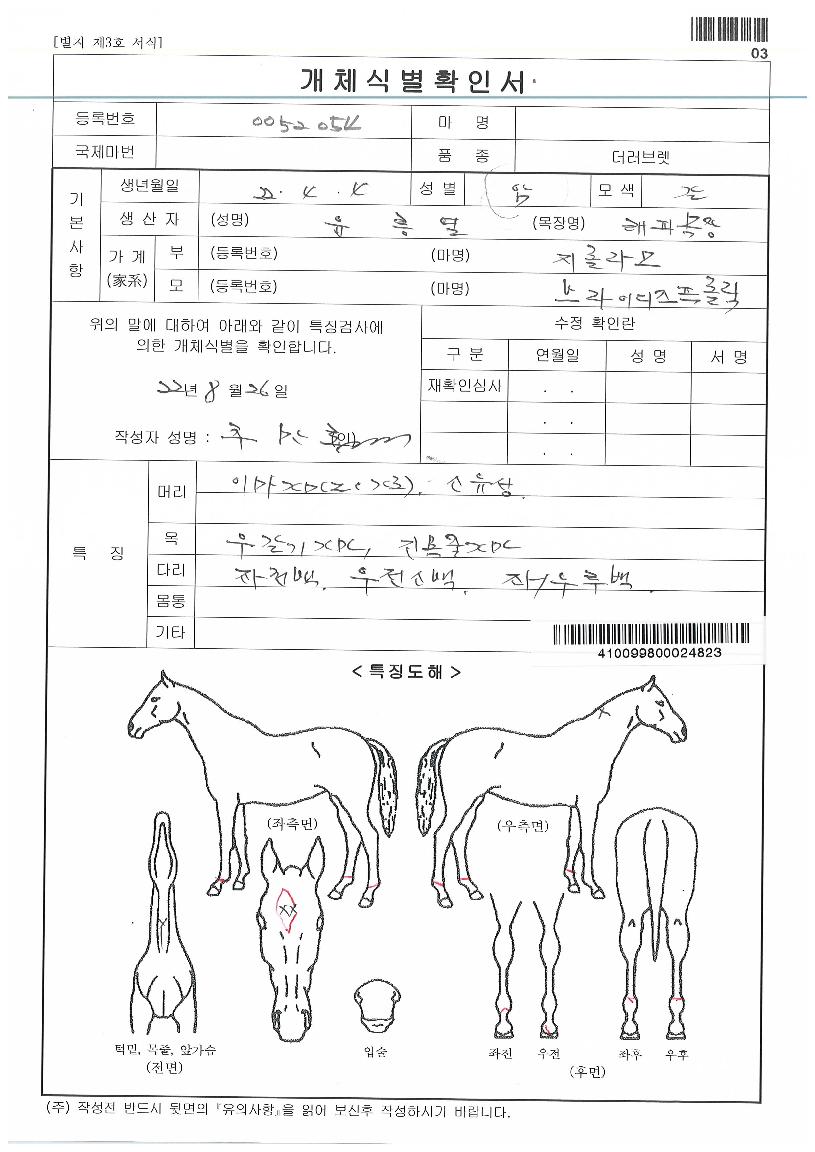 [별지 제3호 서식]
03
개체식별확인서
등록번호 0052054 마 명
국제마번 품 종 더러브렛
기본사항
생년월일 22. 4. 4 성별 암 모색 갈
생산자 (성명) 유 흥 열 (목장명) 해피목장
가계(家系) 부 (등록번호) (마명) 지롤라모
모 (등록번호) (마명) 브라이디즈프롤릭
위의 말에 대하여 아래와 같이 특징검사에
의한 개체식별을 확인합니다.
22년 8월 26일
작성자 성명 : (인)
수정 확인란
구 분 연월일 성 명 서 명
재확인심사 . .
. .
. .
특 징
머리 유성
목
다리 좌전백, 우전소백, 좌/우후백.
몸통
기타
410099800024823
< 특징도해 >
(좌측면) (우측면)
턱밑, 목줄, 앞가슴
(전면)
입술
좌전 우전 좌후 우후
(후면)
(주) 작성전 반드시 뒷면의 『유의사항』을 읽어 보신후 작성하시기 바랍니다.